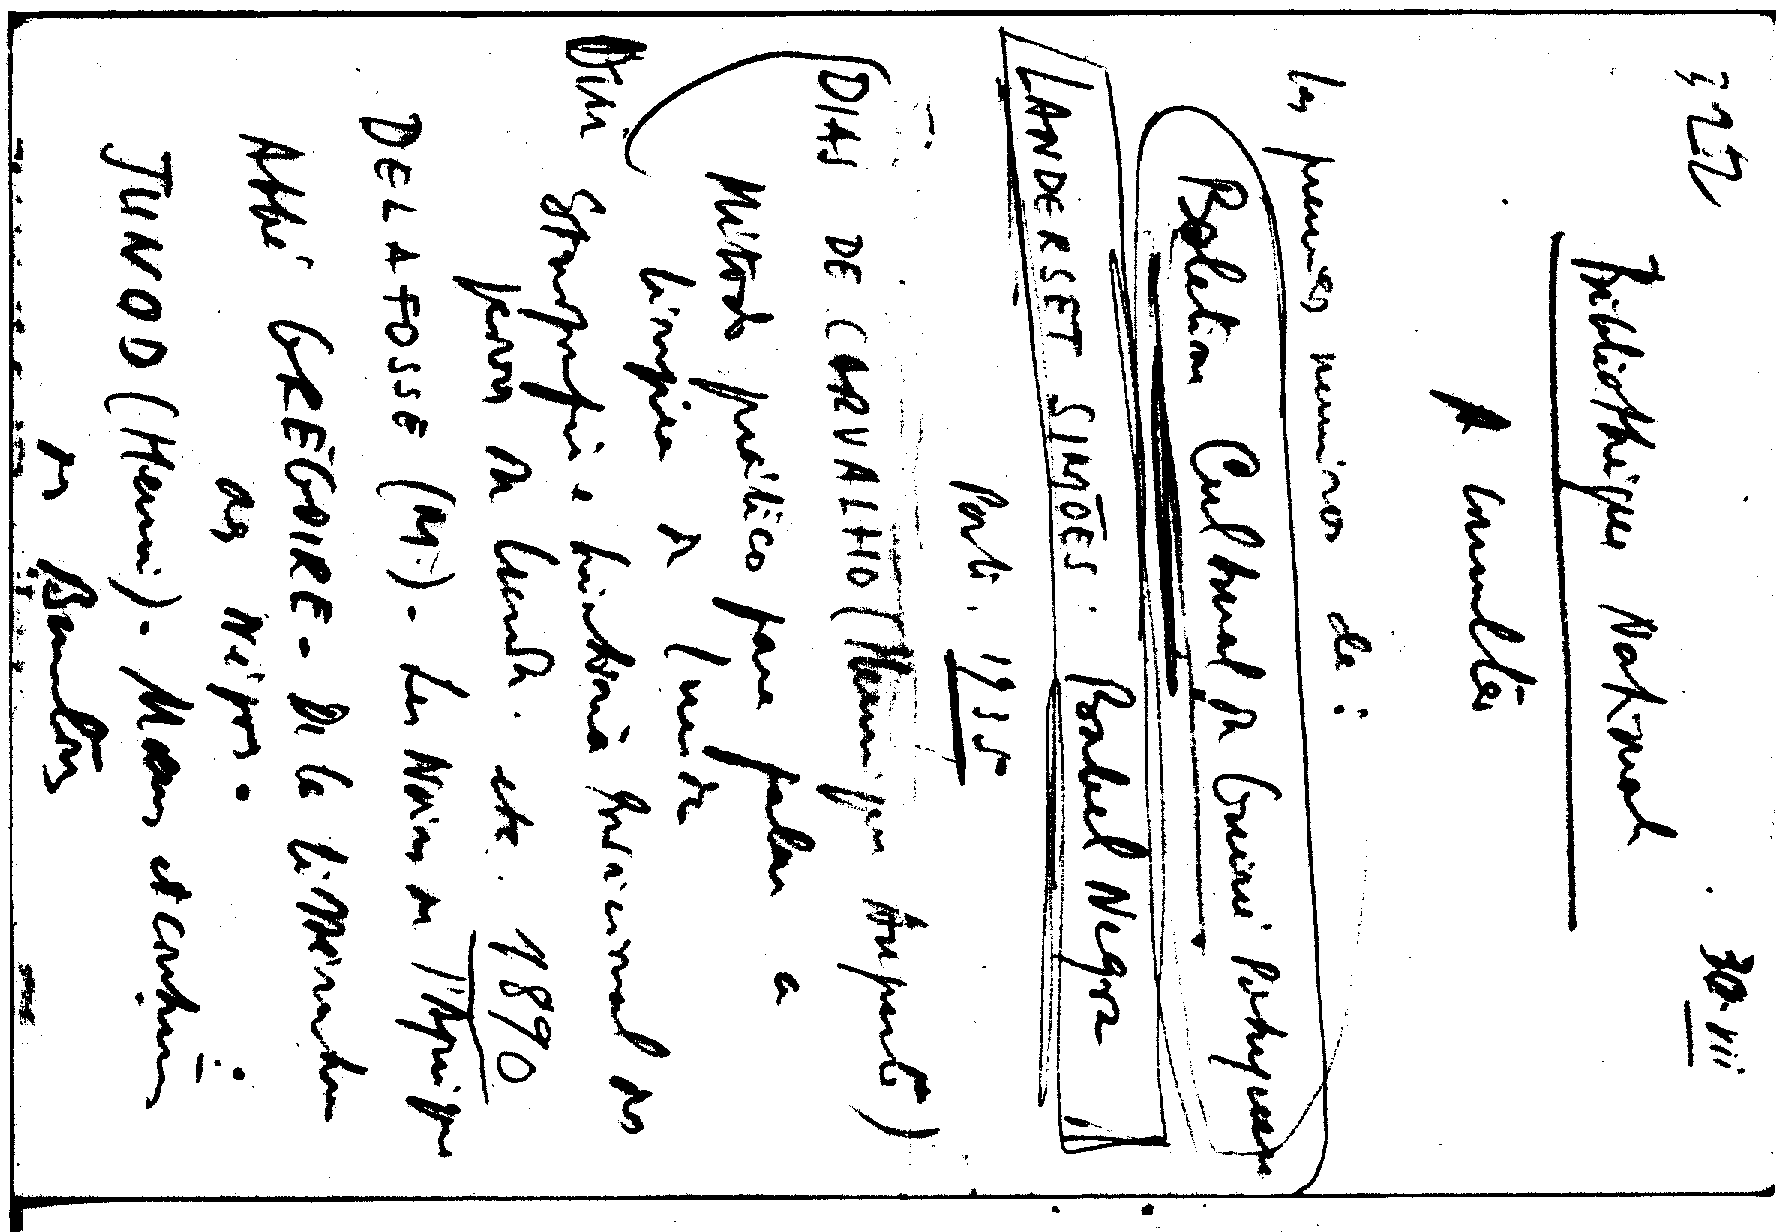 30 VII
Bibliothèque Nationale
A consulter
les premiers numéros de :
Boletim Cultural da Guiné Portuguesa
LANDERSET SIMÕES : Babel Negra
Porto. 1935
DIAS DE CARVALHO (Henrique Augusto)
Método prático para falar a
língua da Lunda
Etnografia e história tradicional dos
povos da Lunda. etc. 1890
DELAFOSSE (M.). Les Noirs de l'Afrique
Abbé GRÉGOIRE. De la littérature
des Nègres.
JUNOD (Henri). Mœurs et coutumes
des Bantous